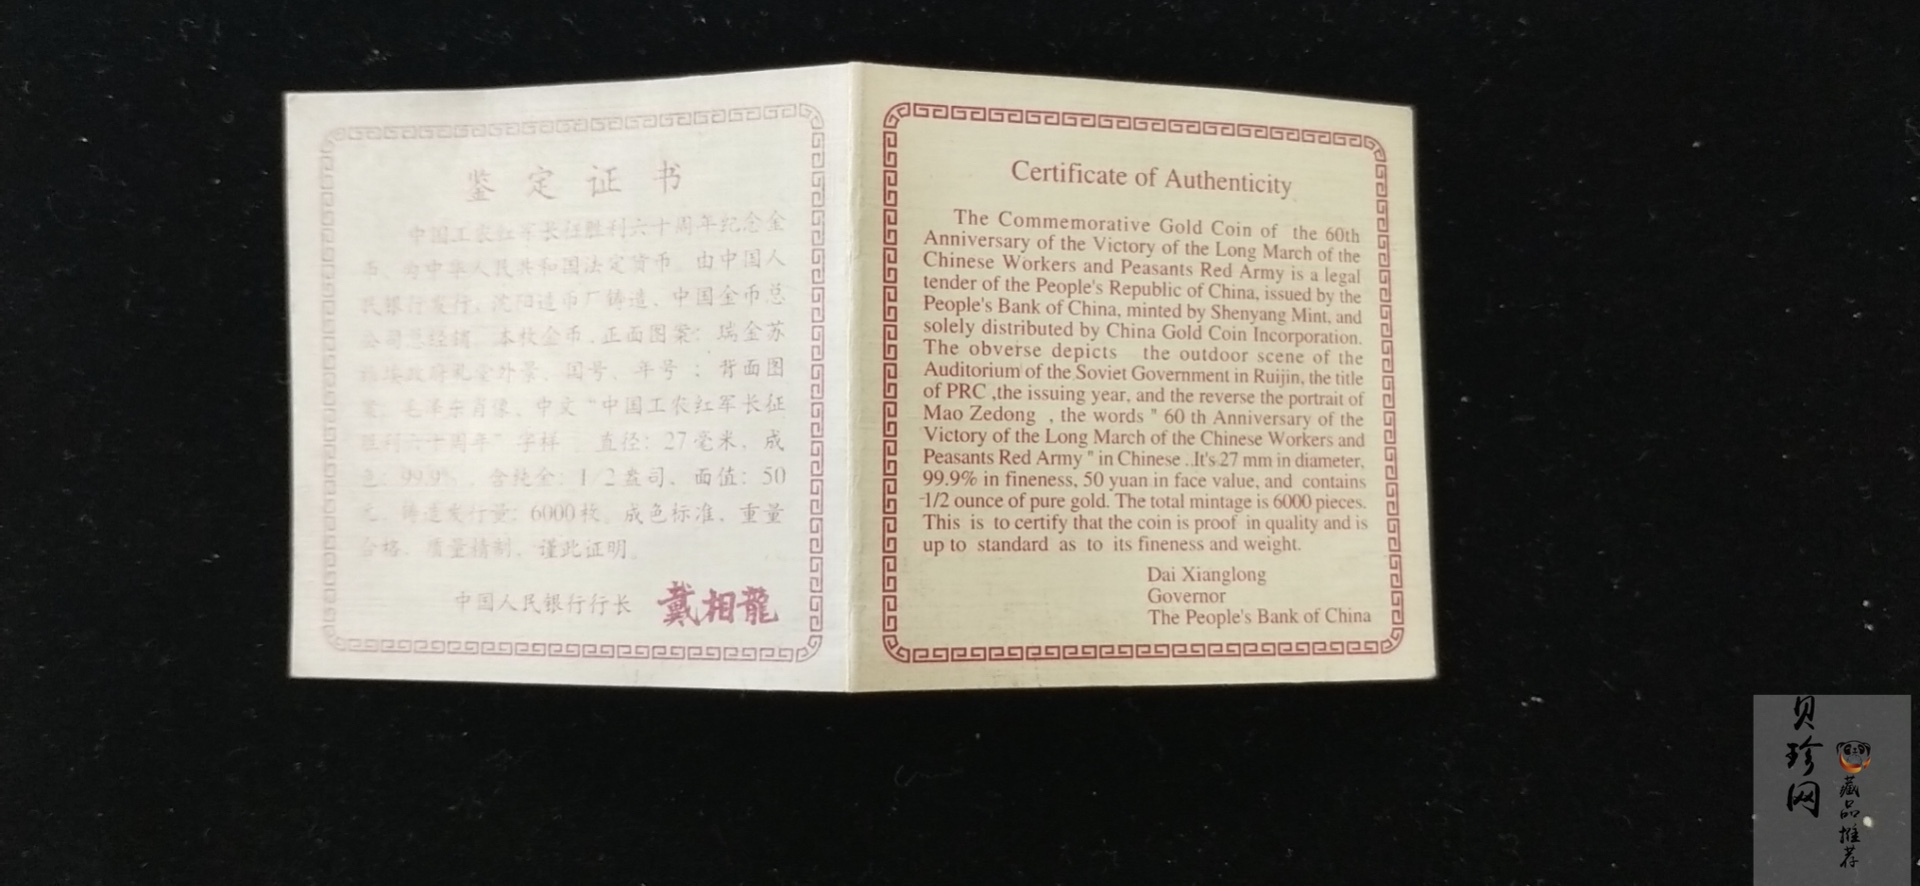 鉴定证书
中国工农红军长征胜利六十周年纪念金
币、为中华人民共和国法定货币。由中国人
民银行发行，沈阳造币厂铸造、中国金币总
公司总经销。本枚金币、正面图案：瑞金苏
维埃政府礼堂外景、国号、年号；背面图
案：毛泽东肖像、中文“中国工农红军长征
胜利六十周年”字样。直径：27毫米、成
色：99.9%、含纯金：1/2盎司、面值：50
元、铸造发行量：6000枚。成色标准、重量
合格、质量精制、谨此证明。
中国人民银行行长 戴相龍
Certificate of Authenticity
The Commemorative Gold Coin of the 60th
Anniversary of the Victory of the Long March of the
Chinese Workers and Peasants Red Army is a legal
tender of the People's Republic of China, issued by the
People's Bank of China, minted by Shenyang Mint, and
solely distributed by China Gold Coin Incorporation.
The obverse depicts the outdoor scene of the
Auditorium of the Soviet Government in Ruijin, the title
of PRC ,the issuing year, and the reverse the portrait of
Mao Zedong , the words " 60 th Anniversary of the
Victory of the Long March of the Chinese Workers and
Peasants Red Army " in Chinese . .It's 27 mm in diameter,
99.9% in fineness, 50 yuan in face value, and contains
1/2 ounce of pure gold. The total mintage is 6000 pieces.
This is to certify that the coin is proof in quality and is
up to standard as to its fineness and weight.
Dai Xianglong
Governor
The People's Bank of China
贝珍网
藏品推荐